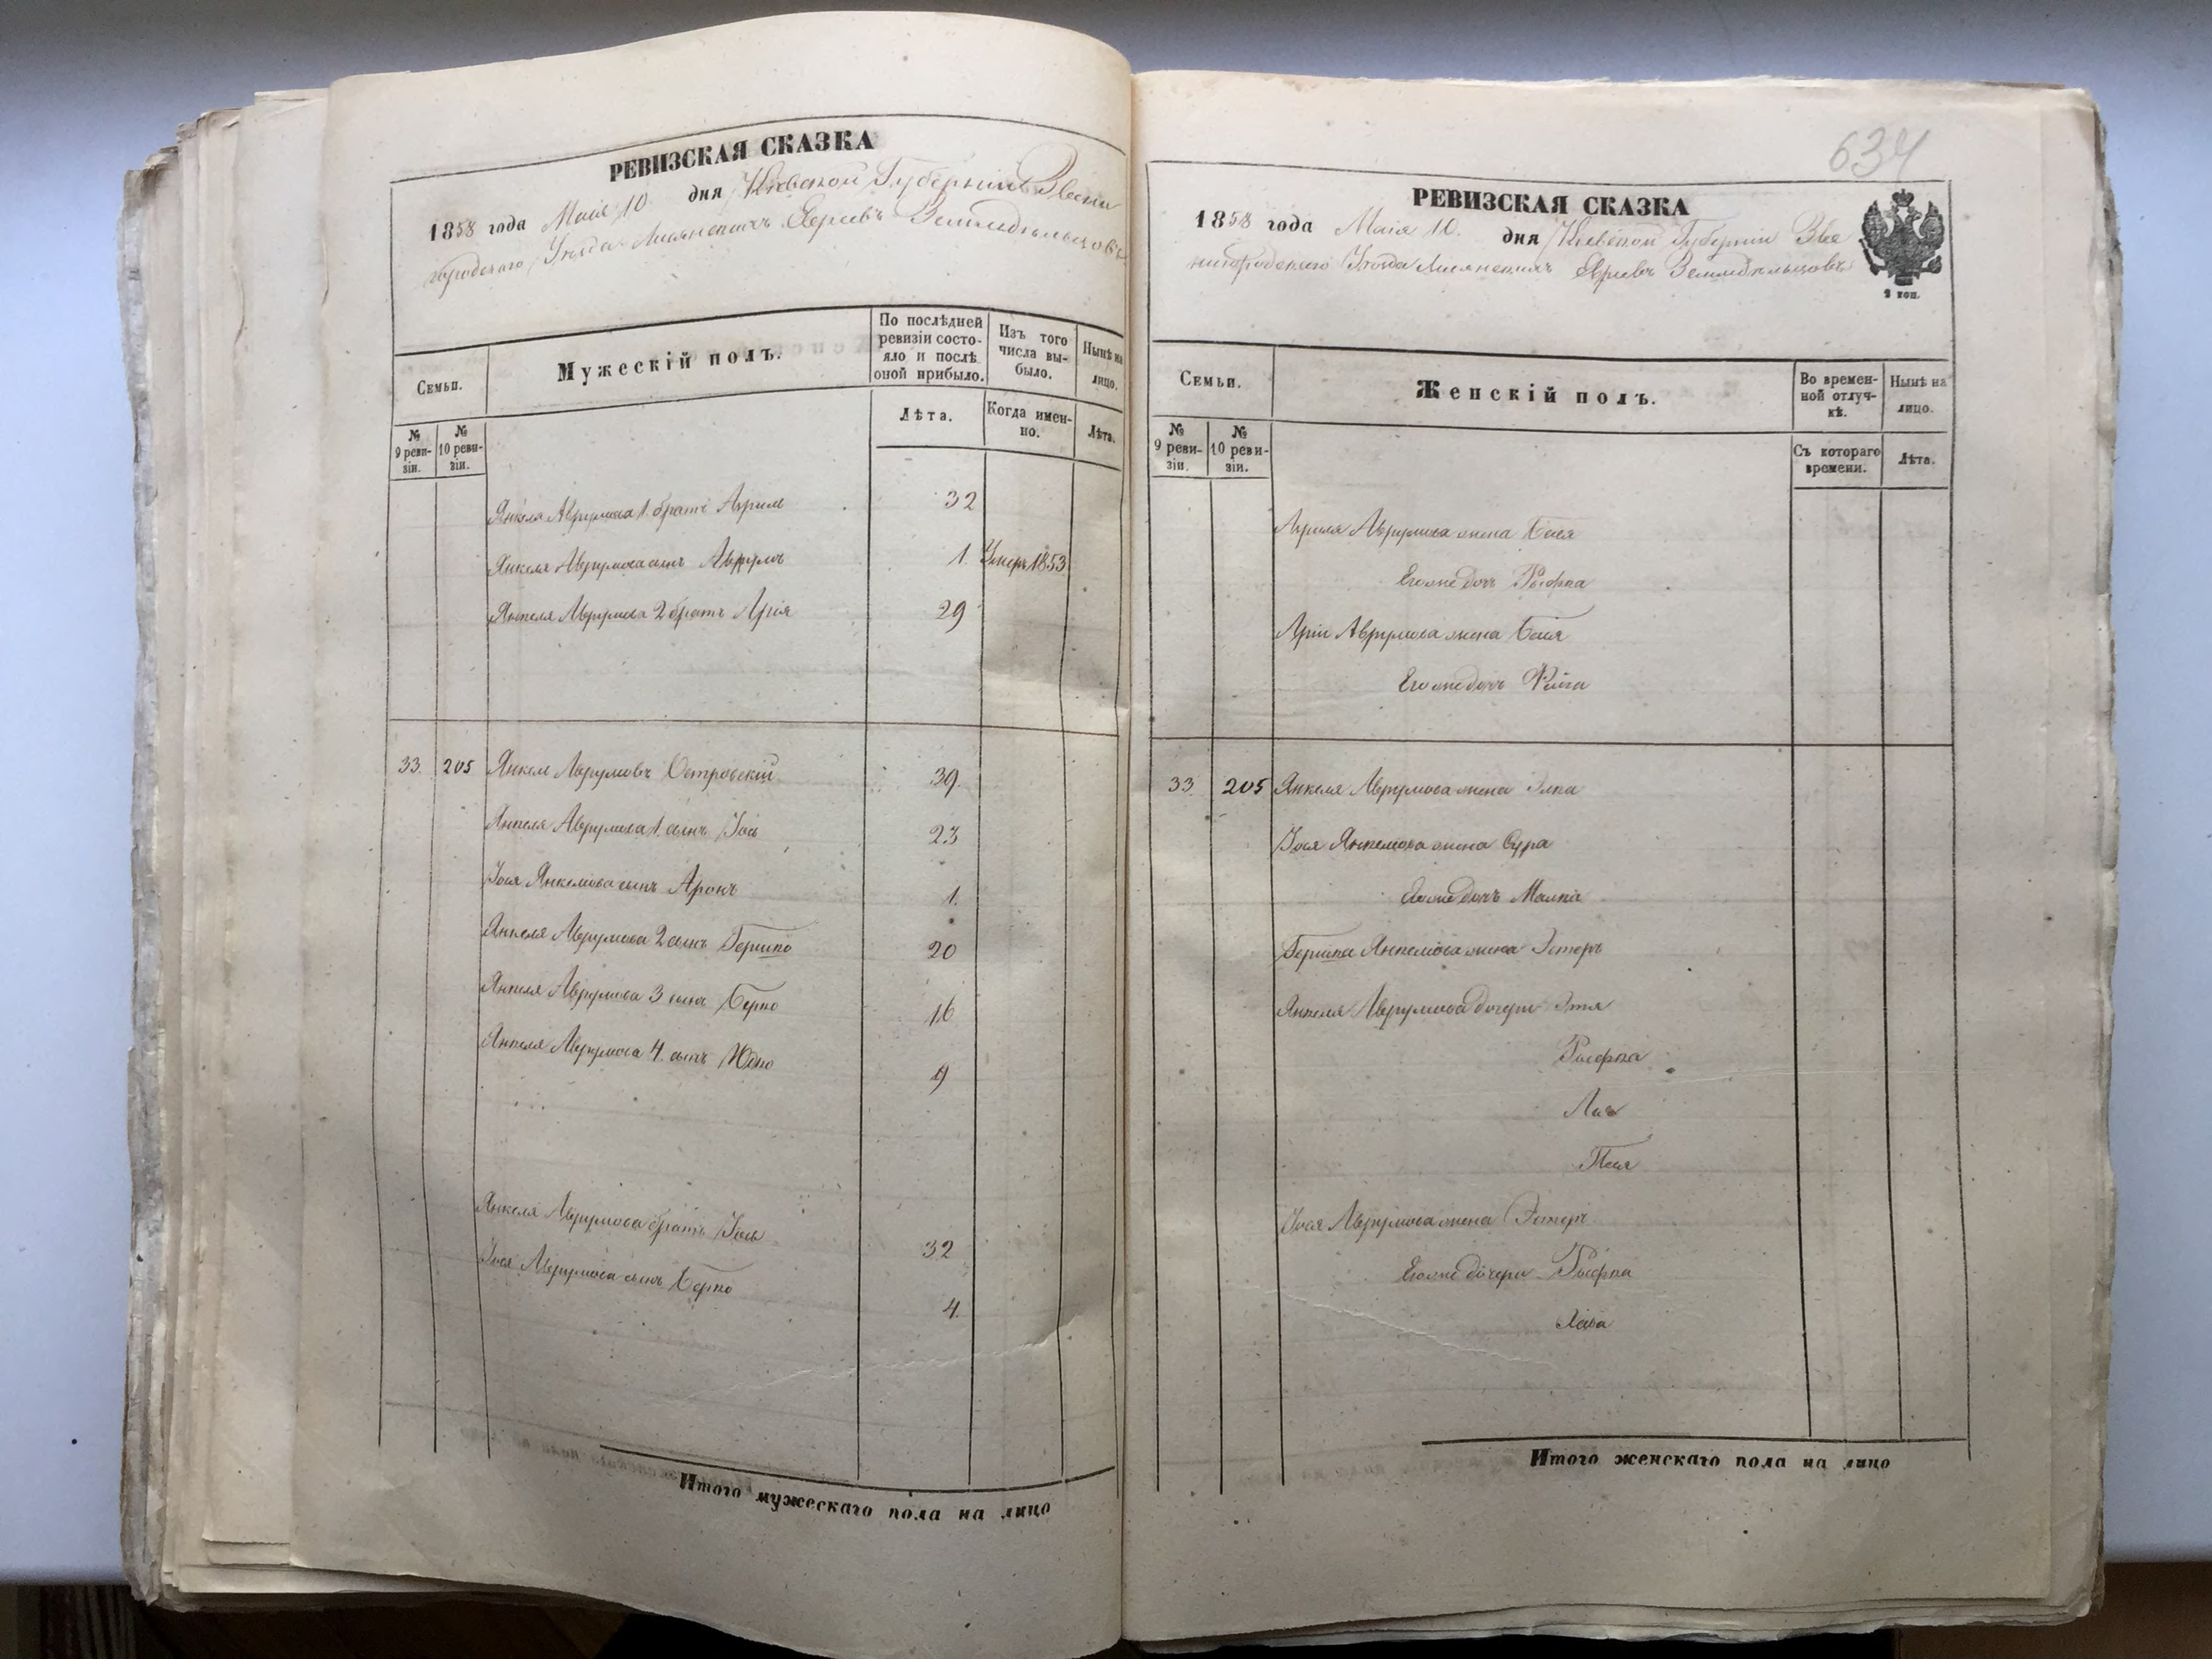 РЕВИЗСКАЯ СКАЗКА
1858 года Маія 10 дня Кіевской Губерніи Звени
городскаго Уѣзда Лисянскихъ Евреевъ Земледѣльцовъ
Семьи.
Мужескій полъ.
По послѣдней ревизіи состо-
яло и послѣ оной прибыло.
Изъ того числа вы-
было.
Нынѣ на лицо.
№ 9 реви-
зіи.
№ 10 реви-
зіи.
Лѣта.
Когда имен-
но.
Лѣта.
Янкеля Аврумова 1. братъ Азриль 32
Янкеля Аврумова сынъ Аврумъ 1. Умеръ 1853
Янкеля Аврумова 2 братъ Арія 29
33. 205 Янкель Аврумовъ Островскій 39.
Янкеля Аврумова 1. сынъ Іось 23
Іося Янкелева сынъ Аронъ 1.
Янкеля Аврумова 2 сынъ Гершко 20
Янкеля Аврумова 3 сынъ Берко 16
Янкеля Аврумова 4. сынъ Юдко 9
Янкеля Аврумова братъ Іось 32
Іося Аврумова сынъ Берко 4.
Итого мужескаго пола на лицо
634
РЕВИЗСКАЯ СКАЗКА
1858 года Маія 10. дня Кіевской Губерніи Зве
нигородскаго Уѣзда Лисянскихъ Евреевъ Земледѣльцовъ
2 коп.
Семьи.
Женскій полъ.
Во времен-
ной отлуч-
кѣ.
Нынѣ на лицо.
№ 9 реви-
зіи.
№ 10 реви-
зіи.
Съ котораго времени.
Лѣта.
Азриля Аврумова жена Бася
Его же дочь Рыфка
Аріи Аврумова жена Бася
Его же дочь Фейга
33. 205 Янкеля Аврумова жена Элка
Іося Янкелева жена Сура
Его же дочь Малка
Гершка Янкелева жена Эстеръ
Янкеля Аврумова дочери Этя
Рыфка
Лая
Песя
Іося Аврумова жена Эстеръ
Его же дочери Рыфка
Хава
Итого женскаго пола на лицо